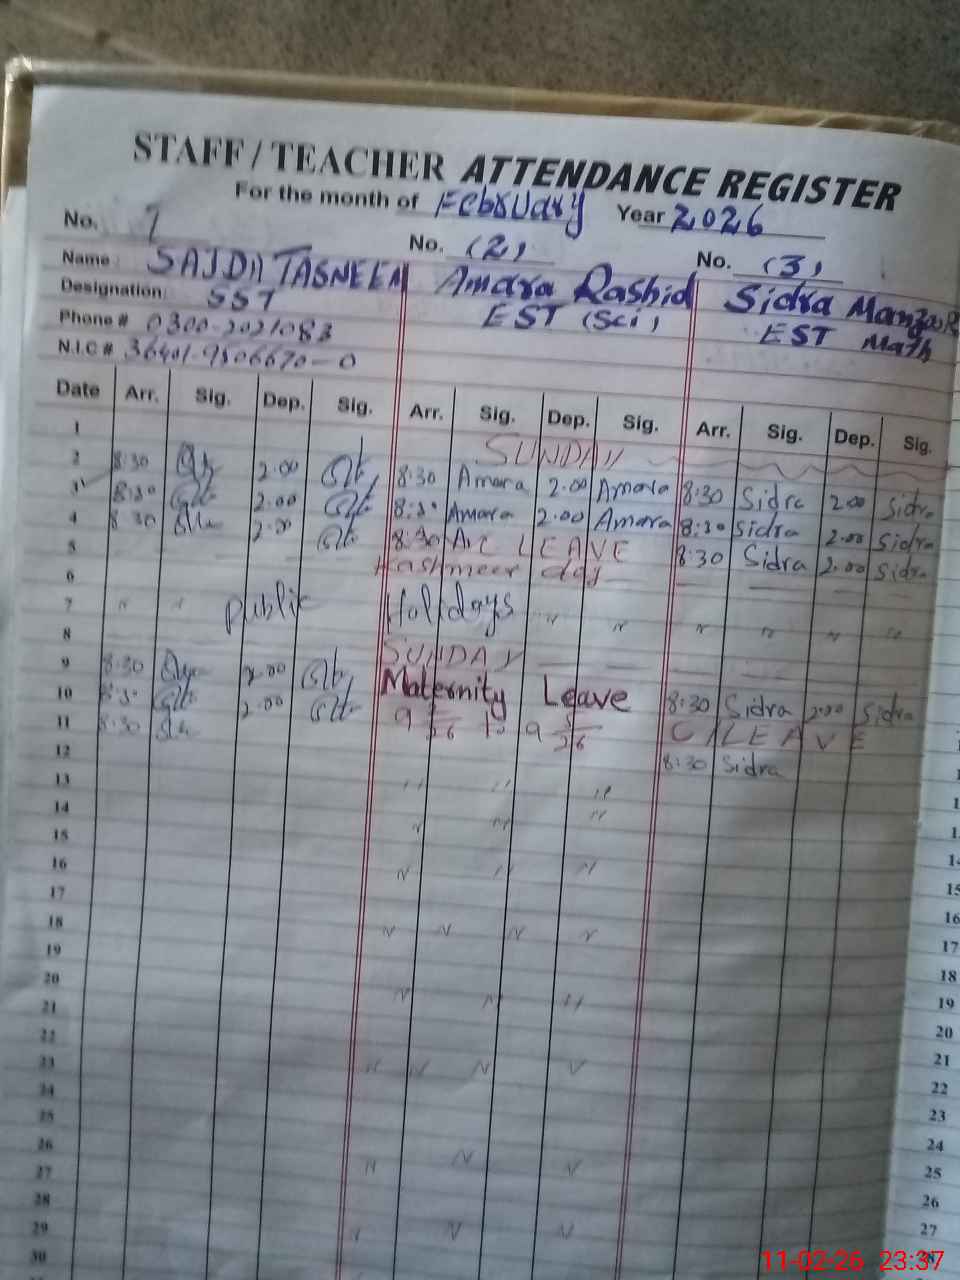 STAFF / TEACHER ATTENDANCE REGISTER
For the month of February Year 2026
No. 1 No. (2) No. (3)
Name: SAJDA TASNEEM Amara Rashid Sidra Manzoor
Designation: SST EST (Sci) EST Math
Phone # 0300-2021083
N.I.C # 36401-9506670-0
Date Arr. Sig. Dep. Sig. Arr. Sig. Dep. Sig. Arr. Sig. Dep. Sig.
1 SUNDAY
2 8:30 2.00 8:30 Amara 2.00 Amara 8:30 Sidra 2.00 Sidra
3 8:30 2.00 8:30 Amara 2.00 Amara 8:30 Sidra 2.00 Sidra
4 8:30 2.00 8:30 LEAVE 8:30 Sidra 2.00 Sidra
5 Kashmeer day
6 Public Holidays
7 " " " " " " " "
8 SUNDAY
9 8:30 2.00 Maternity Leave 8:30 Sidra 2.00 Sidra
10 8:30 2.00 C/LEAVE
11 8:30 8:30 Sidra
12
13 " " "
14 " " "
15
16 " " "
17
18 " " " "
19
20
21 " " "
22
23 " " " "
24
25
26
27 " " "
28
29 " " "
30
14
15
16
17
18
19
20
21
22
23
24
25
26
27
28
11-02-26 23:37